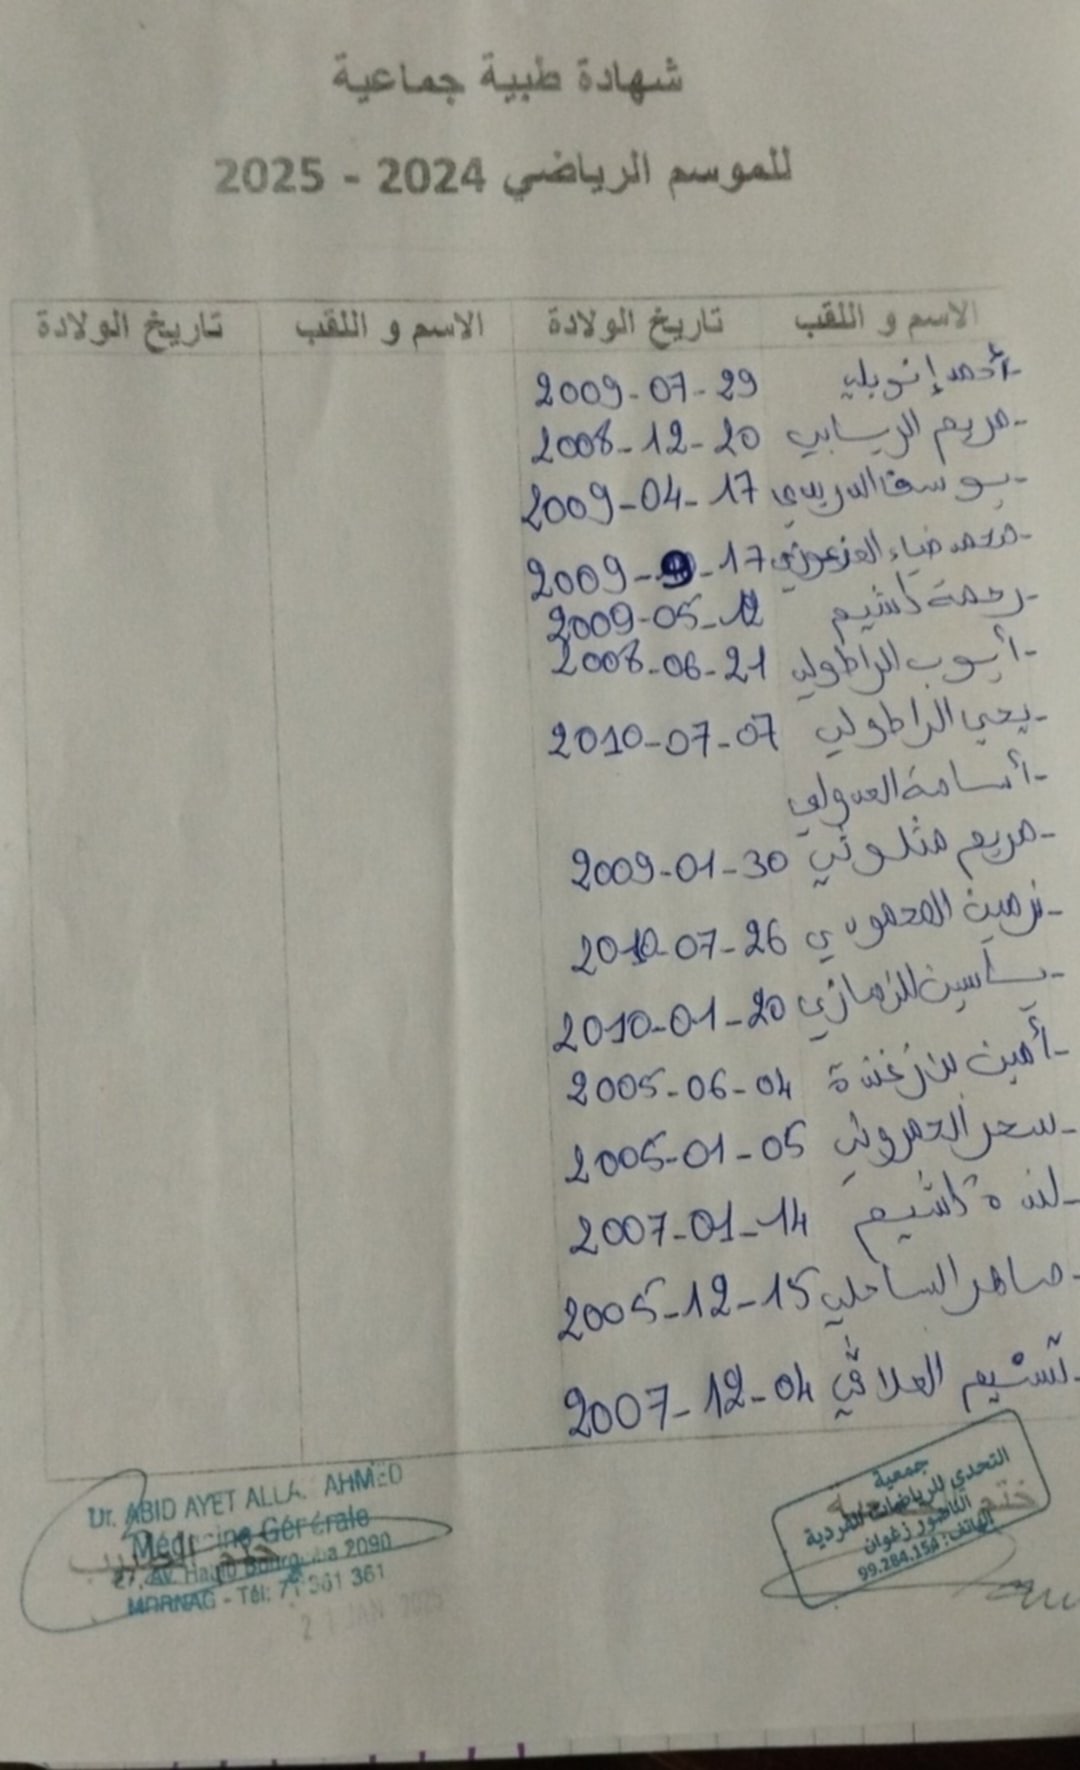 شهادة طبية جماعية
للموسم الرياضي 2024 - 2025
الاسم و اللقب تاريخ الولادة الاسم و اللقب تاريخ الولادة
-أحمد 2009-07-29
-مريم 2008-12-20
-يوسف 2009-04-17
-محمد ضياء 2009-9-17
-رحمة كشيم 2009-05-12
-أيوب الراطولي 2008-06-21
-يحي الراطولي 2010-07-07
-أسامة
-مريم مثلوثي 2009-01-30
-نرمين المحمودي 2010-07-26
-ياسين 2010-01-20
-أمين بن زغندة 2005-06-04
-سحر الحمروني 2005-01-05
-لندة كشيم 2007-01-14
-ماهر الساحلي 2005-12-15
-تسنيم العلاقي 2007-12-04
Dr. ABID AYET ALLA. AHMED
Médecine Générale
ختم الطبيب
Av. Habib Bourguiba 2090
MORNAG - Tél: 71 361 361
JAN 2025
جمعية
التحدي للرياضات الفردية
الناظور زغوان
الهاتف: 99.284.154
ختم